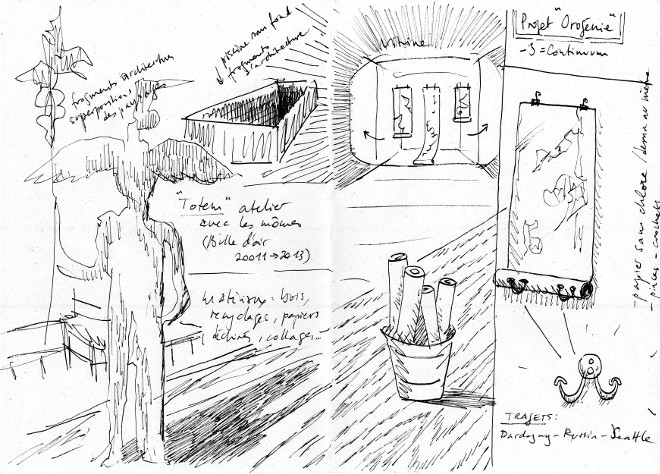 fragments architectures
superpositions
des paysages
piscine sans fond
fragments
d'architecture
"Totem" atelier
avec les mômes
(Bulle d'air
20011→2013)
Matériaux: bois,
recyclages, papiers
déchirés, collages...
Vitrine
Projet "Orogénie"
-3 = Continuum
- papier sans chlore / derma au
- pinces - crochets
TRAJETS:
Dardagny - Russin - Seattle